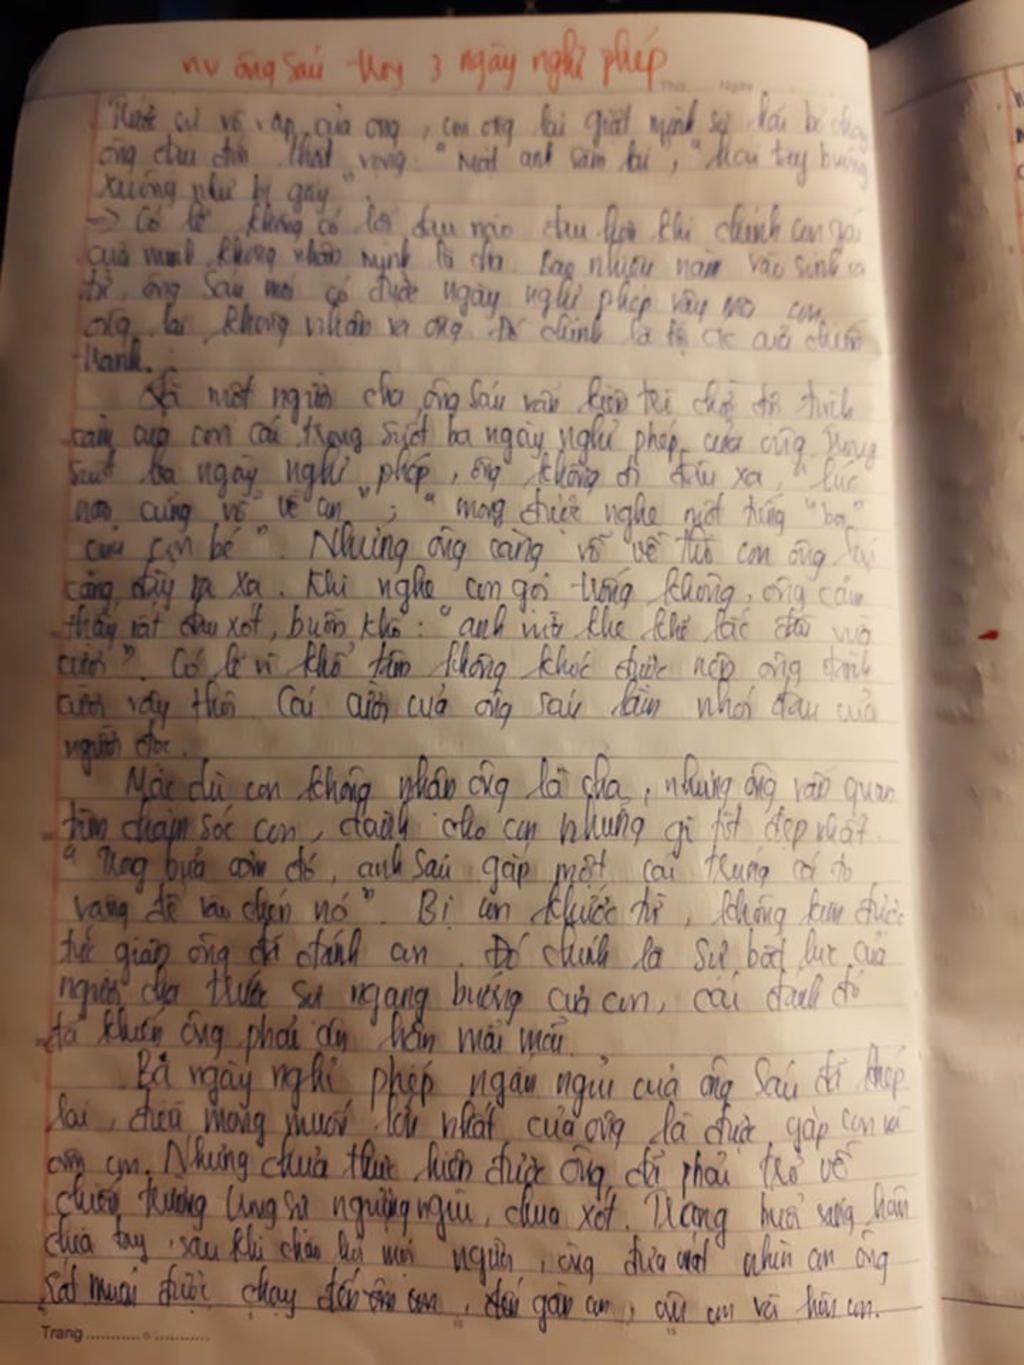 nv ông Sáu trong 3 ngày nghỉ phép
Trước sự vồ vập của ông, con ông lại giật mình sợ hãi bỏ chạy
ông đau đớn thất vọng "Mặt anh sầm lại", "Hai tay buông
xuống như bị gãy".
-> Có lẽ không có lời đau nào đau hơn khi chính con gái
của mình không nhận mình là cha. Bao nhiêu năm vào sinh ra
tử, ông Sáu mới có được ngày nghỉ phép vậy mà con
ông lại không nhận ra ông. Đó chính là tội ác của chiến
tranh.
Là một người cha ông Sáu vẫn kiên trì chờ đợi tình
cảm của con cái trong suốt ba ngày nghỉ phép của ông. Trong
suốt ba ngày nghỉ phép, ông không đi đâu xa, "lúc
nào cũng vỗ về con"; "mong được nghe một tiếng "ba"
của con bé". Nhưng ông càng vỗ về thì con ông lại
càng đẩy ra xa. Khi nghe con gọi trống không, ông cảm
thấy rất đau xót, buồn khổ: "anh vừa khe khẽ lắc đầu vừa
cười". Có lẽ vì khổ tâm không khóc được nên ông đành
cười vậy thôi. Cái cười của ông Sáu làm nhói đau của
người đọc.
Mặc dù con không nhận ông là cha, nhưng ông vẫn quan
tâm chăm sóc con, dành cho con những gì tốt đẹp nhất.
"Trong bữa cơm đó, anh Sáu gắp một cái trứng cá to
vàng để vào chén nó". Bị con khước từ, không kìm được
tức giận ông đã đánh con. Đó chính là sự bất lực của
người cha trước sự ngang bướng của con, cái đánh đó
đã khiến ông phải ân hận mãi mãi.
Ba ngày nghỉ phép ngắn ngủi của ông Sáu đã khép
lại, điều mong muốn lớn nhất của ông là được gặp con và
ôm con. Nhưng chưa thực hiện được ông đã phải trở về
chiến trường trong sự ngượng ngùi, chua xót. Trong buổi sáng hôm
chia tay, sau khi chào hỏi mọi người, ông đưa mắt nhìn con ông
rất muốn được chạy đến gần con, ôm con và hôn con.
Trang